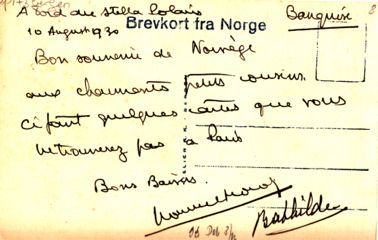 A bord du Stella Polaris
Brevkort fra Norge
Banquise
10 August 1930
Bon souvenir de Norvège
aux charmants petits cousins
ci joint quelques cartes que vous
retrouverez pas a Paris
Bons Baisers.
Bathilde